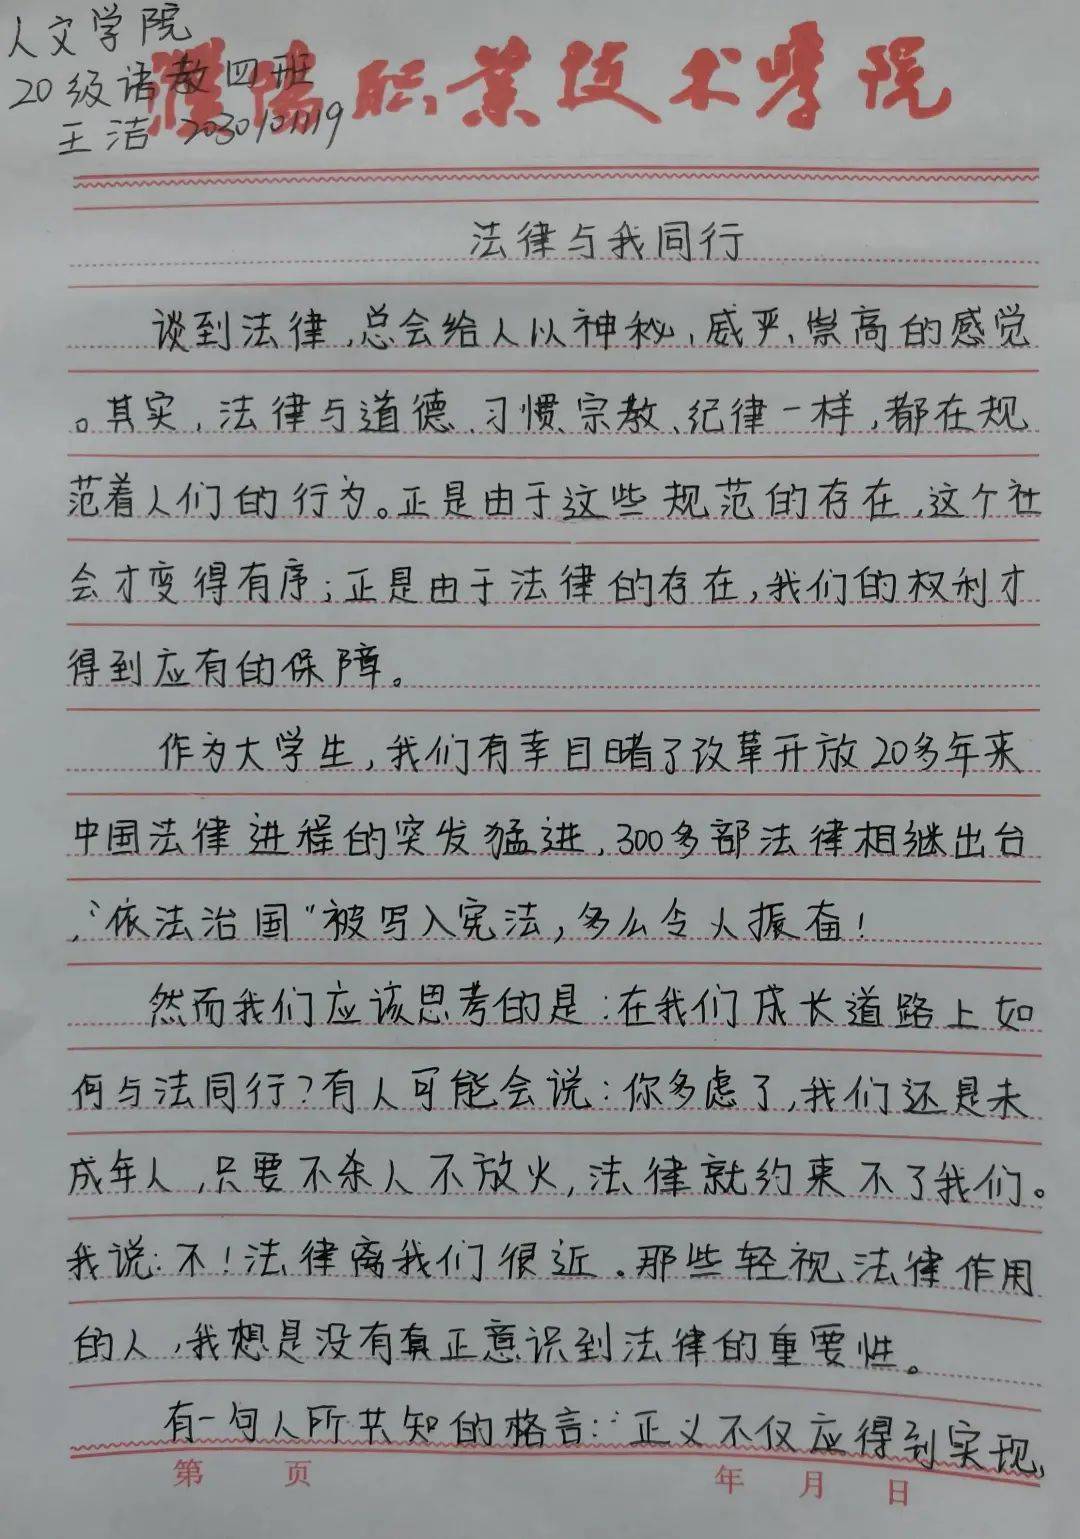 人文学院
20级语教四班
王洁 2030101119
濮阳职业技术学院
法律与我同行
谈到法律,总会给人以神秘,威严,崇高的感觉
。其实,法律与道德、习惯、宗教、纪律一样,都在规
范着人们的行为。正是由于这些规范的存在,这个社
会才变得有序;正是由于法律的存在,我们的权利才
得到应有的保障。
作为大学生,我们有幸目睹了改革开放20多年来
中国法律进程的突发猛进,300多部法律相继出台
,“依法治国”被写入宪法,多么令人振奋!
然而我们应该思考的是:在我们成长道路上如
何与法同行?有人可能会说:你多虑了,我们还是未
成年人,只要不杀人不放火,法律就约束不了我们。
我说:不!法律离我们很近。那些轻视法律作用
的人,我想是没有真正意识到法律的重要性。
有一句人所共知的格言:“正义不仅应得到实现,
第 页 年 月 日